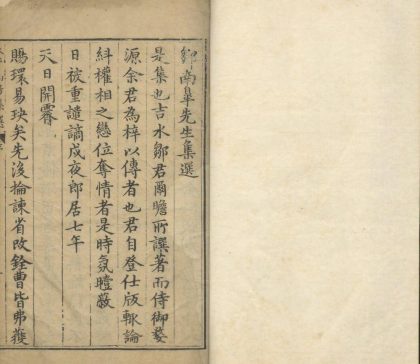 鄒南皐先生集選
是集也吉水鄒君爾瞻所譔著而侍御婺
源余君為梓以傳者也君自登仕版輒論
糾權相之戀位奪情者是時氛曀蔽
日被重譴謫戍夜郎居七年
天日開霽
賜環易玦矣先後掄諫省改銓曹皆弗獲